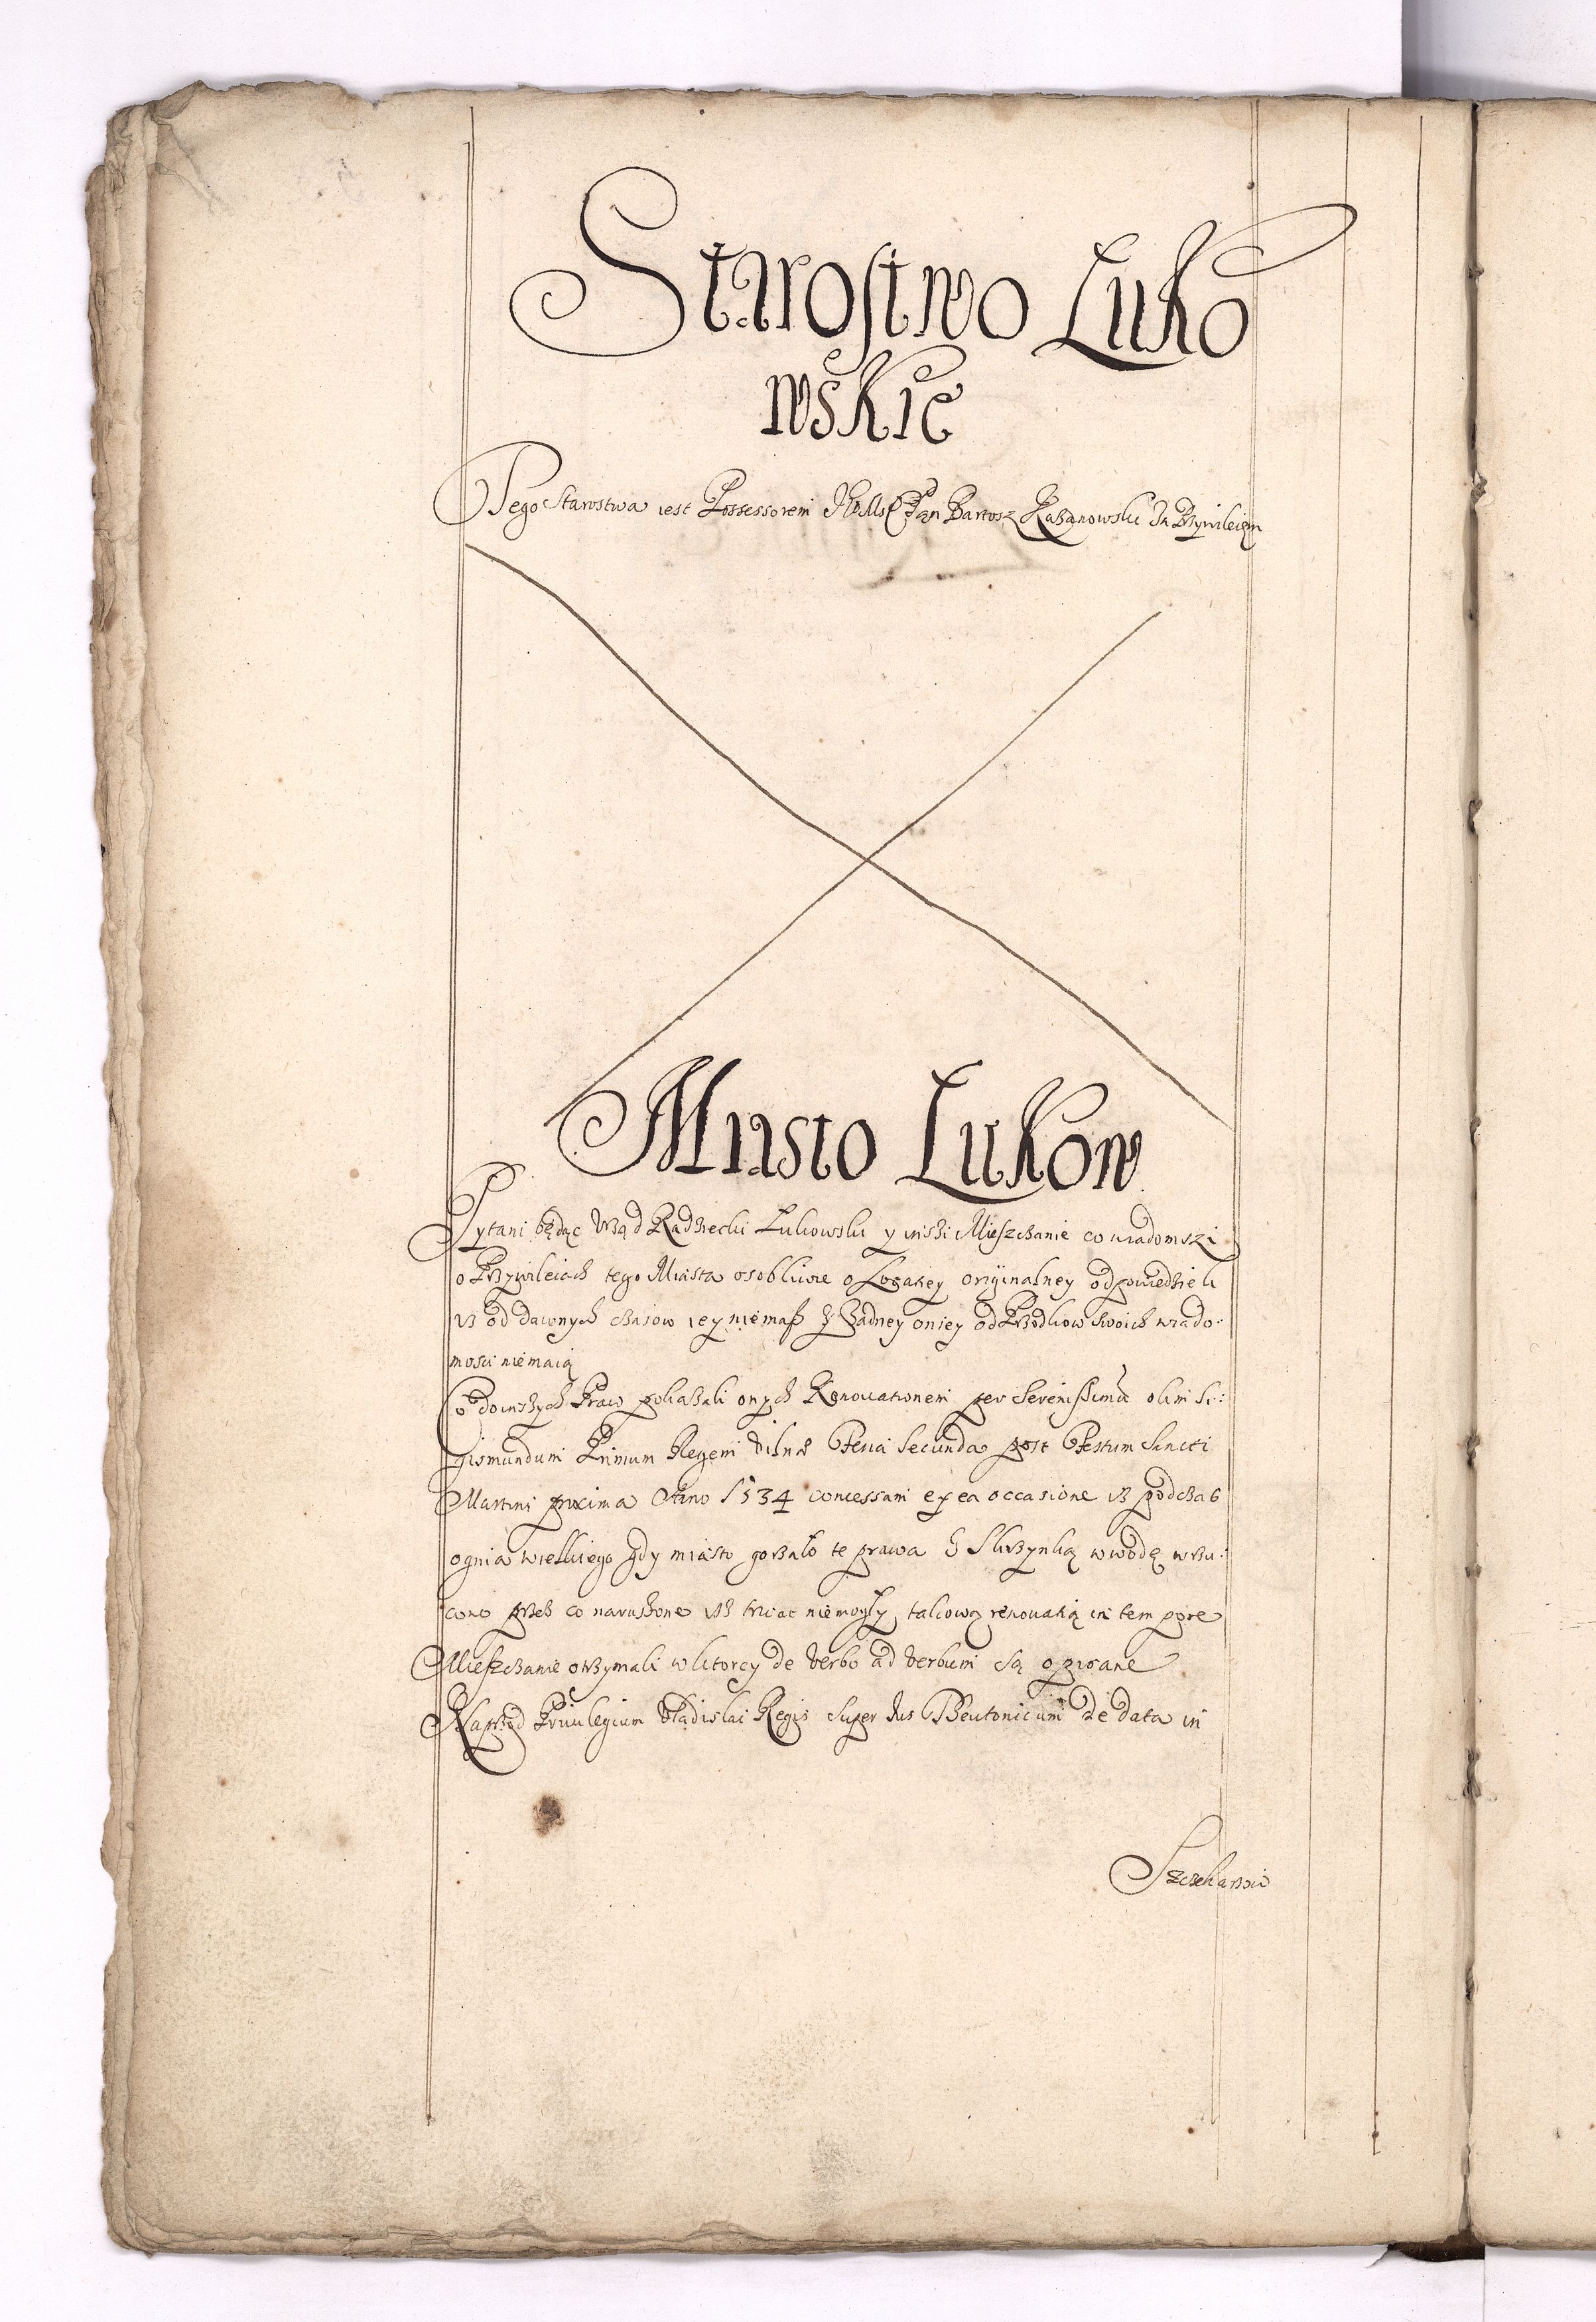 Starostwo Łuko
wskie
Tego Starostwa iest Possessorem Pan Bartosz Kazanowski Za Przywileiem
Miasto Łukow
Pytani będąc Urząd Radziecki Łukowski y inszi Mieszczanie co wiadomszi
o Przywileiach tego Miasta osobliwie o Locatiey originalney odpowiedzieli
iż od dawnych czasow iey niemasz y żadney oniey od Przodkow swoich wiado-
mosci niemaią
Praw pokazali onych Renouationem per Serenissimũ olim Si-
gismundum Primum Regem Vilnæ Feria Secunda post Festum Sancti
Martini proxima Anno 1534 concessam ex ea occasione iż podczas
ognia wielkiego gdy miasto gorzało te prawa z Skrzynką w wodę wrzu-
cono przez co naruszone iż trwac niemogły takową renouatią in tempore
Mieszczanie otrzymali w ktorey de verbo ad verbum są opisane
Naprzod Priuilegium Vładislai Regis super Ius Theutonicum de data in